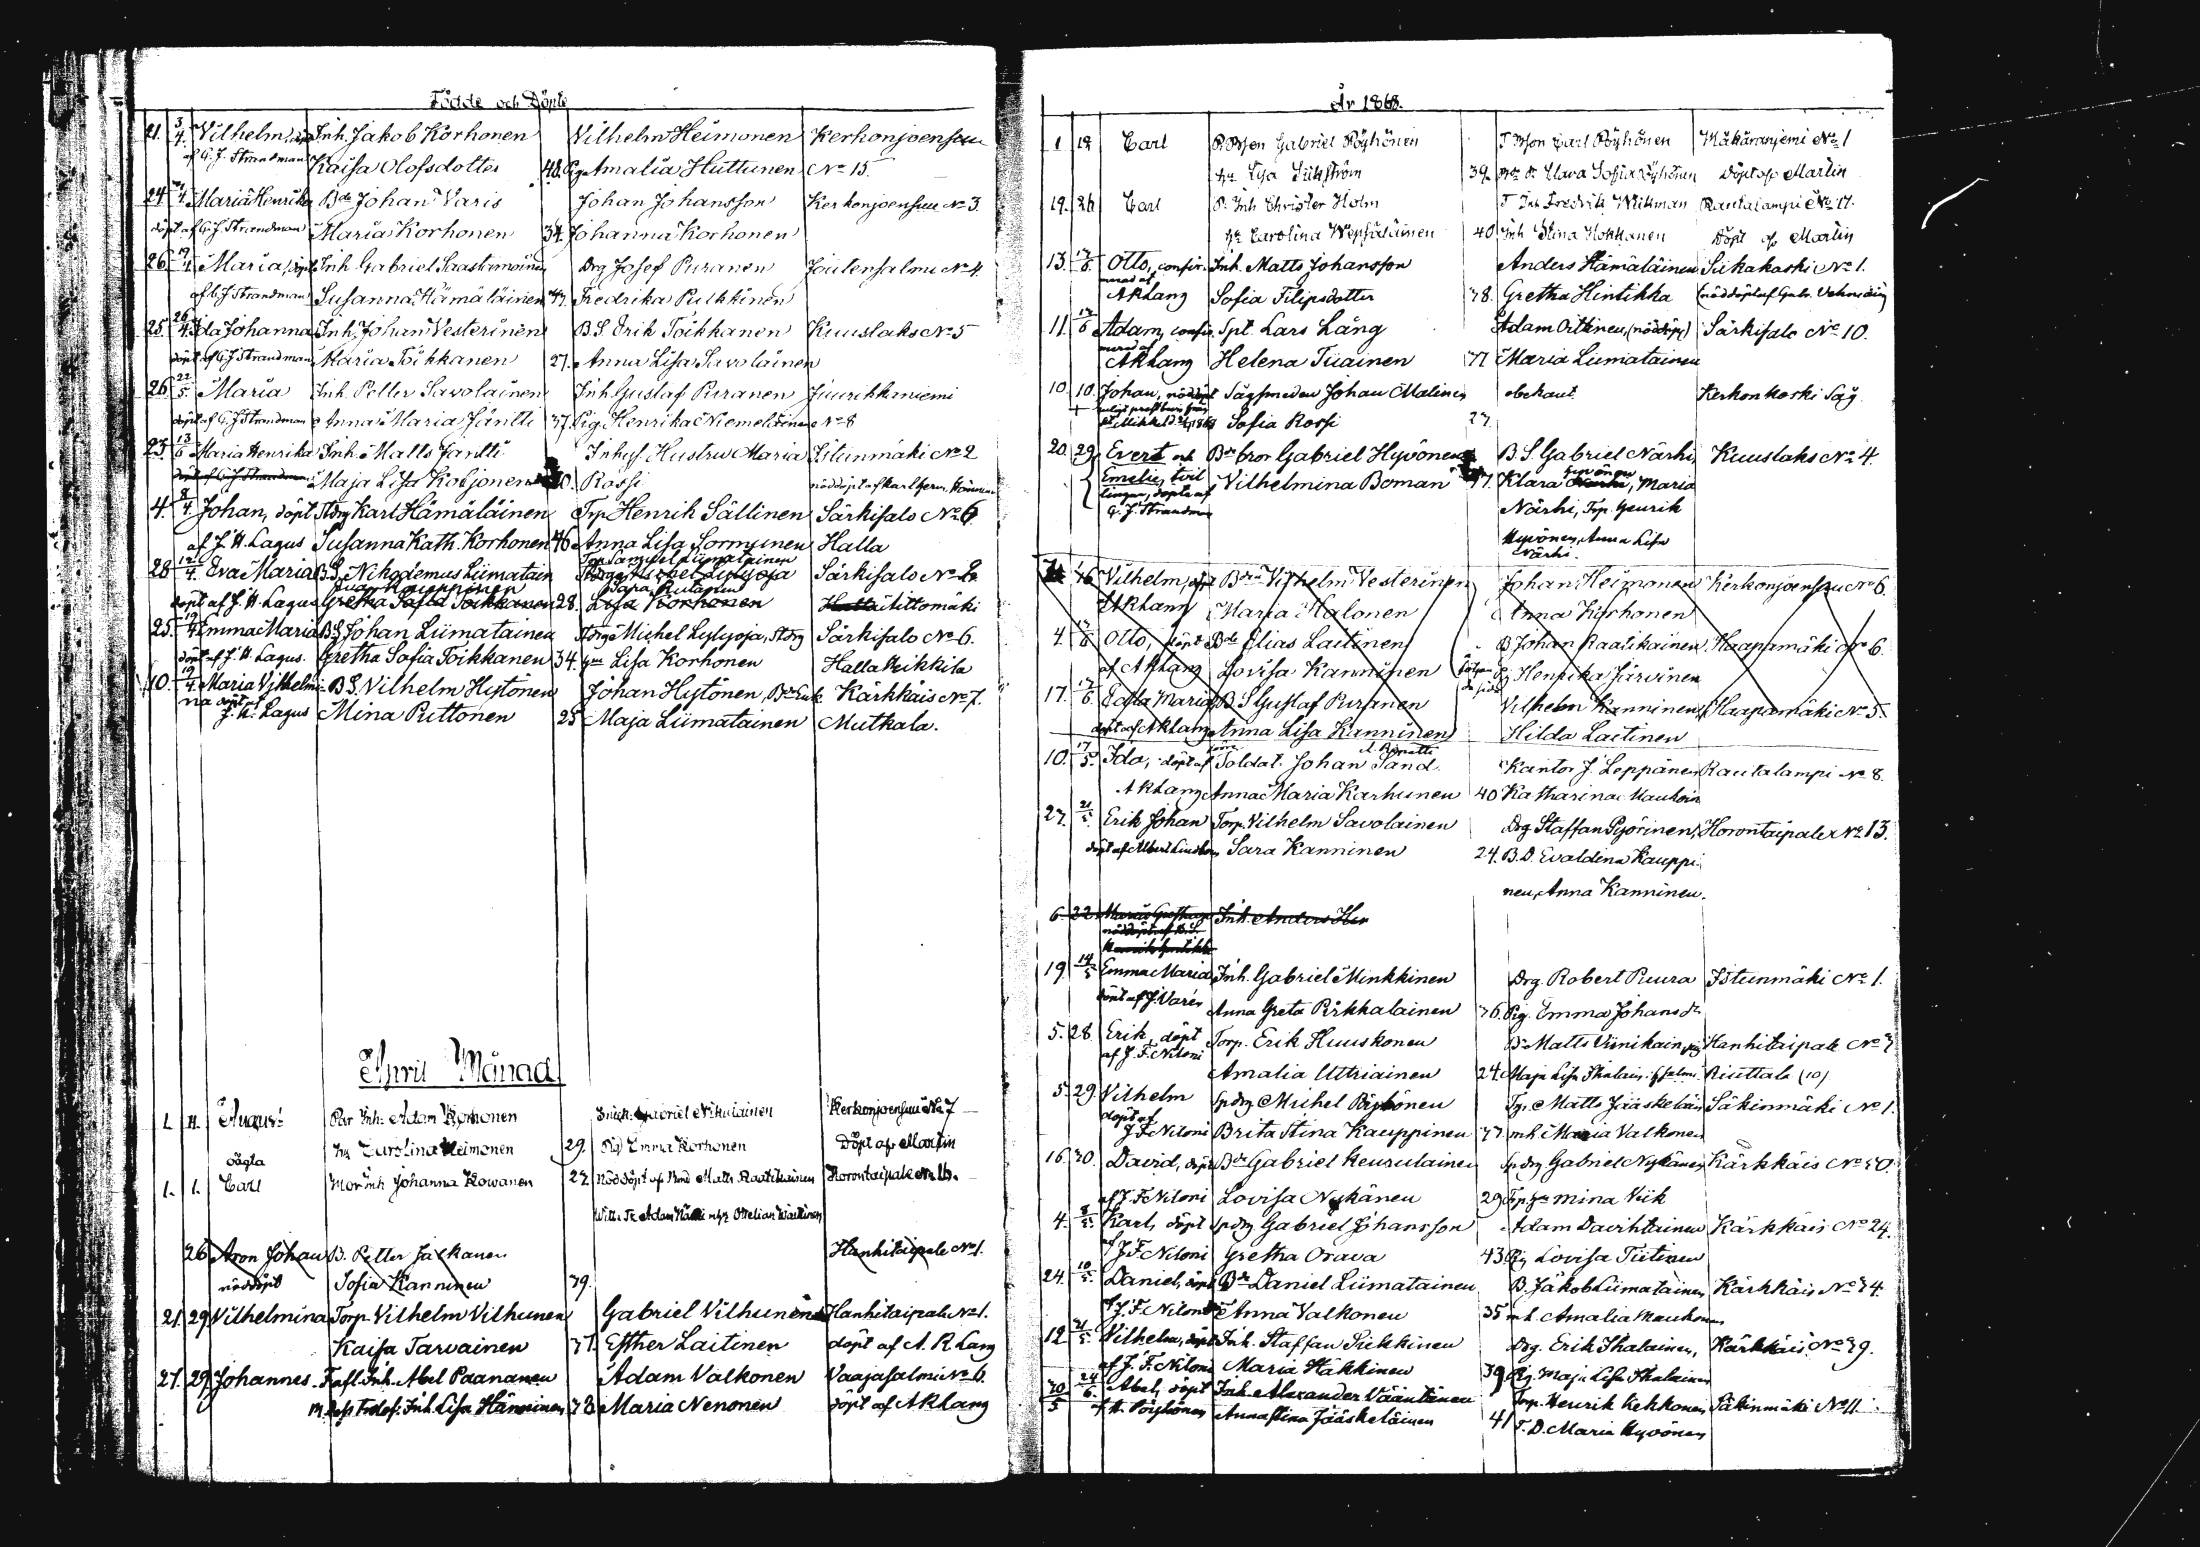 Födde och Döpte
21. 3/4. Vilhelm, döpt Inh. Jakob Korhonen Vilhelm Heimonen Kerkonjoensuu
af G. J. Strandman Kaisa Olofsdotter 48. Pig. Amalia Huttunen No 15.
24 4. Maria Henrika Bde Johan Varis Johan Johansson Kerkonjoensuu No 3.
döpt af G. J. Strandman Maria Korhonen 34. Johanna Korhonen
26 19/4 Maria, döpt Inh. Gabriel Saastamoinen Drg Josef Puranen Joutensalmi No 4
af G. J. Strandman Susanna Hämäläinen 47. Fredrika Pulkkinen
25. 26/4 Ida Johanna Inh. Johan Vesterinen B.S. Erik Toikkanen Kuuslaks No 5
döpt af G. J. Strandman Maria Toikkanen 27. Anna Lisa Savolainen
26. 22/5. Maria Inh. Petter Savolainen Inh. Gustaf Puranen Juurikkaniemi
döpt af G. J. Strandman Anna Maria Jäntti 37. Pig. Henrika Niemeläinen No 8
23. 13/6 Maria Henrika Inh. Matts Jäntti Inhys Hustru Maria Istunmäki No 2
döpt af G. J. Strandman Maja Lisa Koljonen 40. Rossi nöddöpt af Karl Herm.
4. 8/4 Johan, döpt Stdrg Karl Hämäläinen Trp Henrik Sällinen Särkisalo No 6
af J. H. Lagus Susanna Kath. Korhonen 46 Anna Lisa Sormunen Halla
28 12/4. Eva Maria B.S. Nikodemus Liimatain Trp Samuel Liimatainen Särkisalo No 2
döpt af J. H. Lagus Gretha Sofia Toikkanen 28. Lisa Korhonen Halla Littomäki
25. 19/4 Emma Maria B.S. Johan Liimatainen Stdrg Michel Lylyoja, Stdrg Särkisalo No 6.
döpt af J. H. Lagus. Gretha Sofia Toikkanen 34. Lisa Korhonen Halla Heikkila
10. 19/4 Maria Vilhelmi- B.S. Vilhelm Hytönen Johan Hytönen, Bde Enk Kärkkäis No 7.
na döpt af J. H. Lagus Mina Puttonen 25 Maja Liimatainen Mutkala.
April Månad
1. 11. August Par Inh. Adam Korhonen Gabriel Nikulainen Kerkonjoensuu No 7
hu Carolina Heimonen 29. Pig Emma Korhonen Döpt af Martin
oägta
1. 1. Carl Mor Inh Johanna Kowanen 27 Nöddöpt af Bond Matts Raatikainen Horontaipale No 16.
26 Aron Johan B. Petter Jalkanen Hanhitaipale No 1.
nöddöpt Sofia Kanninen 39.
21. 29 Vilhelmina Torp. Vilhelm Vilhunen Gabriel Vilhunen Hanhitaipale No 1.
Kaisa Tarvainen 37. Esther Laitinen döpt af A. R. Lang
27. 29. Johannes. Fafl. Inh. Abel Paananen Adam Valkonen Vaajasalmi No 6.
Inh. Lisa Hänninen 32 Maria Nenonen döpt af A R Lang
År 1868.
1 19. Carl Gabriel Pöyhönen T Mson Carl Pöyhönen Mäkäräniemi No 1
hu Lisa Lilkström 39. Clara Sofia Pöyhönen Döpt af Martin
19. 26 Carl P. Inh Christer Holm T Inh Fredrik Wikman Rautalampi No 17.
hu Carolina Wepsäläinen 40 Inh Stina Kokkanen Döpt af Martin
13. 17/6. Otto, confir- Inh. Matts Johansson Anders Hämäläinen Sukakoski No 1.
merad af A R Lang Sofia Filipsdotter 38. Gretha Hintikka (nöddöpt af Gabr. Vehniäin)
11. 17/6 Adam, confir Spt. Lars Lång Adam Oittinen, (nöddöpt) Särkisalo No 10.
merad af A R Lang Helena Tuainen 37 Maria Liimatainen
10 10. Johan, nöddöpt Sågsmeden Johan Malinen obekant Kerkonkoski Såg
Sofia Rossi 27.
20. 29. Evert och Bde bror Gabriel Hyvönen B.S. Gabriel Närhi, Kuuslaks No 4.
Emelie, tvil Vilhelmina Boman 37. Klara Hyvönen, Maria
lingar, döpta af Närhi, Trp. Henrik
G. J. Strandman Hyvönen, Anna Lisa
Närhi.
16 Vilhelm, döpt Bde Vilhelm Vesterinen Johan Heimonen Kerkonjoensuu No 6.
A R Lang Maria Halonen Anna Korhonen
4. 17/6 Otto, döpt Bde Elias Laitinen B Johan Raatikainen Haapamäki No 6.
af A R Lang Lovisa Kanninen Henrika Järvinen
17. 17/6. Edla Maria B S Gustaf Puranen Vilhelm Kanninen, Haapamäki No 5.
döpt af A R Lang Anna Lisa Kanninen Hilda Laitinen
10. 17/5. Ida, döpt af Soldat. Johan Sand Kantor J. Leppänen Rautalampi No 8.
A R Lang Anna Maria Karhunen 40 Katharina Mauhoin
27. 21/5. Erik Johan Torp. Vilhelm Savolainen Drg Staffan Pyörinen, Horontaipale No 13.
döpt af Albert Lindbom Sara Kanninen 24. B.D. Evaldina Kauppi
nen, Anna Kanninen.
6 22 Maria Gretha Inh. Anders Hin
nöddöpt af B.S.
19 14/5 Emma Maria Inh. Gabriel Minkkinen Drg. Robert Puura Istunmäki No 1.
döpt af J. Varén Anna Greta Pirkkalainen 36. Pig. Emma Johansdr
5. 28 Erik, döpt Torp. Erik Huuskonen Bde Matts Viinikain, Hanhitaipale No 3
af J. F. Niloni Amalia Uttriainen 24. Maja Lisa Ihalain. Riuttala (10)
5. 29. Vilhelm Spdrg Michel Pöyhönen Trp. Matts Jääskeläin Säkinmäki No 1.
döpt af J. F. Niloni Brita Stina Kauppinen 37. inh. Maria Valkonen
16. 30. David, döpt Bde Gabriel Keurulainen Spdrg Gabriel Nykänen Kärkkäis No 30.
af J. F. Niloni Lovisa Nykänen 29 Trp. Mina Viik
4. 8/5. Karl, döpt Spdrg Gabriel Johansson Adam Davihtainen Kärkkäis No 24.
af J. F. Niloni Gretha Orava 43 Pig. Lovisa Tiitinen
24. 10/5. Daniel, döpt Bde Daniel Liimatainen B. Jakob Liimatainen Kärkkäis No 34.
af J. F. Niloni Anna Valkonen 35 inh. Amalia Mauhonen
12. 21/5. Vilhelm, döpt Inh. Staffan Siekkinen Drg. Erik Ihalainen, Kärkkäis No 39.
af J. F. Niloni Maria Häkkinen 39 Pig. Maja Lisa Ihalainen
30/5 24/6. Abel, döpt Inh. Alexander Väänänen Torp. Henrik Kekkonen Säkinmäki No 11.
af H. Pöyhönen Anna Stina Jääskeläinen 41 T. D. Maria Hyvönen